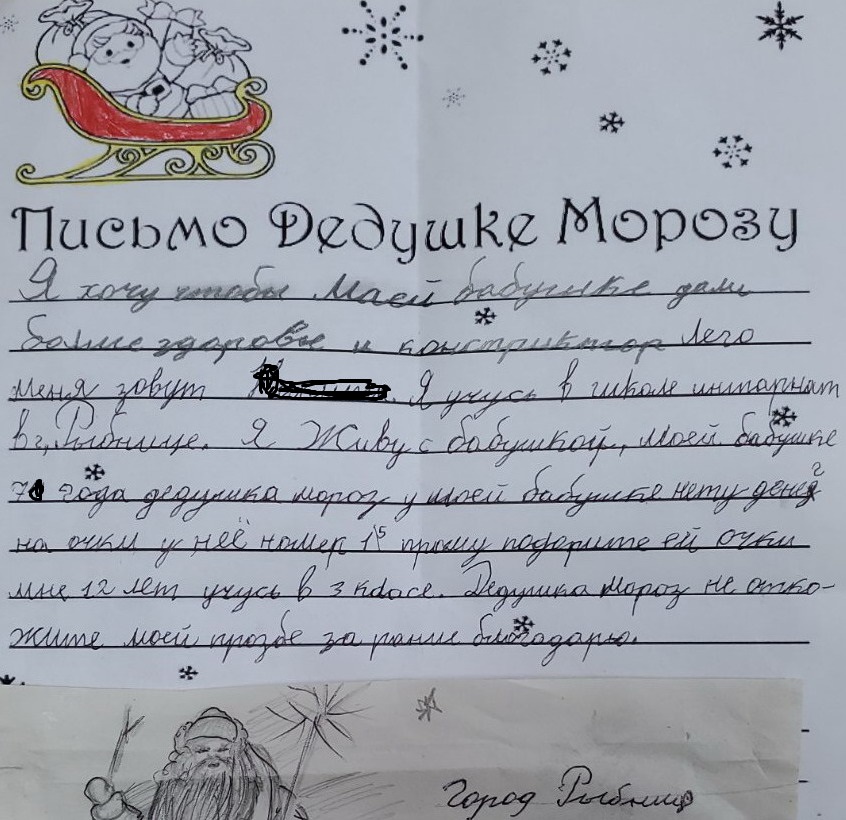 Письмо Дедушке Морозу
Я хочу чтобы Маей бабушке дали
более здоровье и констриктор Лего
меня зовут Я учусь в школе интарнат
в г, Рыбнице. Я Живу с бабушкой, моей бабушке
года дедушка мороз у моей бабушке нету денег
на очки у неё номер 1,5 прошу подарите ей очки
мне 12 лет учусь в 3 класе. Дедушка мороз не отко-
жите моей прозбе за рание благодарю.
Город Рыбница